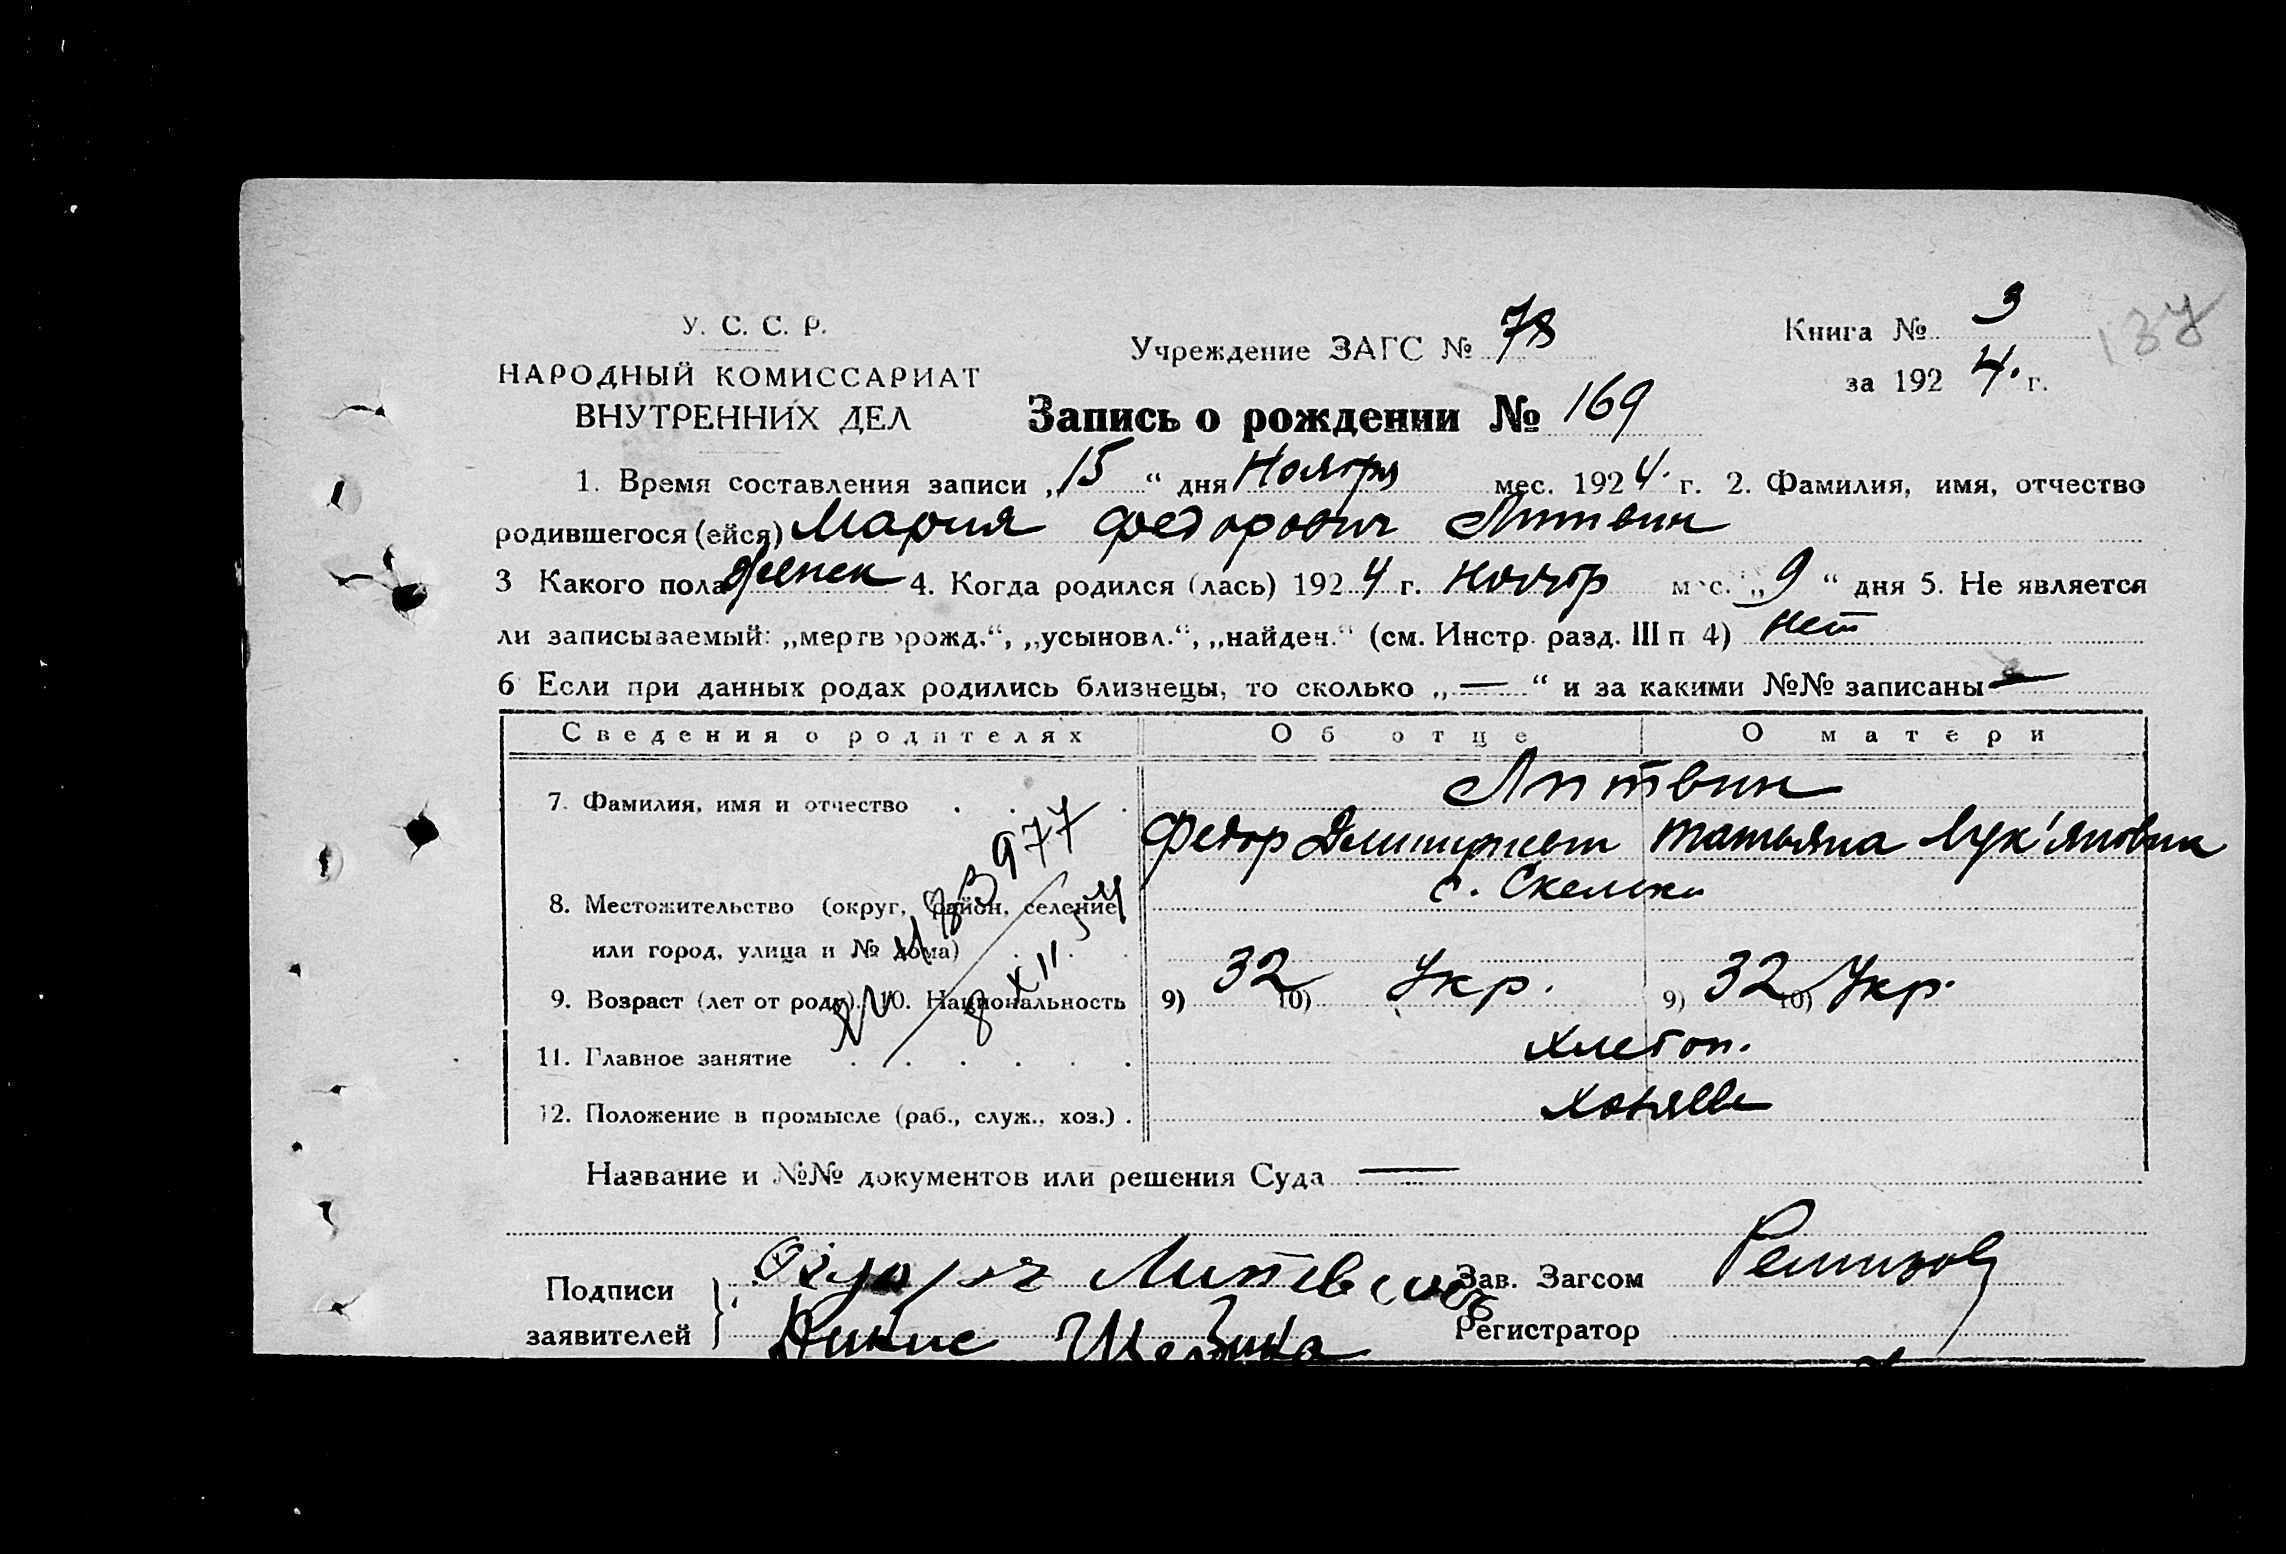 У. С. С. Р.
НАРОДНЫЙ КОМИССАРИАТ
ВНУТРЕННИХ ДЕЛ
Учреждение ЗАГС № 78
Книга № 3
за 1924. г.
134
Запись о рождении № 169
1. Время составления записи „15“ дня Ноября мес. 1924. г. 2. Фамилия, имя, отчество
родившегося (ейся) Мария Федорович Литвин
3 Какого пола женск 4. Когда родился (лась) 1924 г. Ноябр мес. „9“ дня 5. Не является
ли записываемый: „мертворожд.“, „усыновл.“, „найден.“ (см. Инстр. разд. III п 4) нет
6 Если при данных родах родились близнецы, то сколько „—“ и за какими №№ записаны —
Сведения о родителях Об отце О матери
Литвин
7. Фамилия, имя и отчество
Федор Татьяна
8. Местожительство (округ, район, селение с. Скельки
или город, улица и № дома)
9. Возраст (лет от роду). 10. Национальность 9) 32 10) Укр. 9) 32 10) Укр.
11. Главное занятие хлебоп.
12. Положение в промысле (раб., служ., хоз.)
Название и №№ документов или решения Суда —
Подписи
заявителей
Зав. Загсом
Регистратор